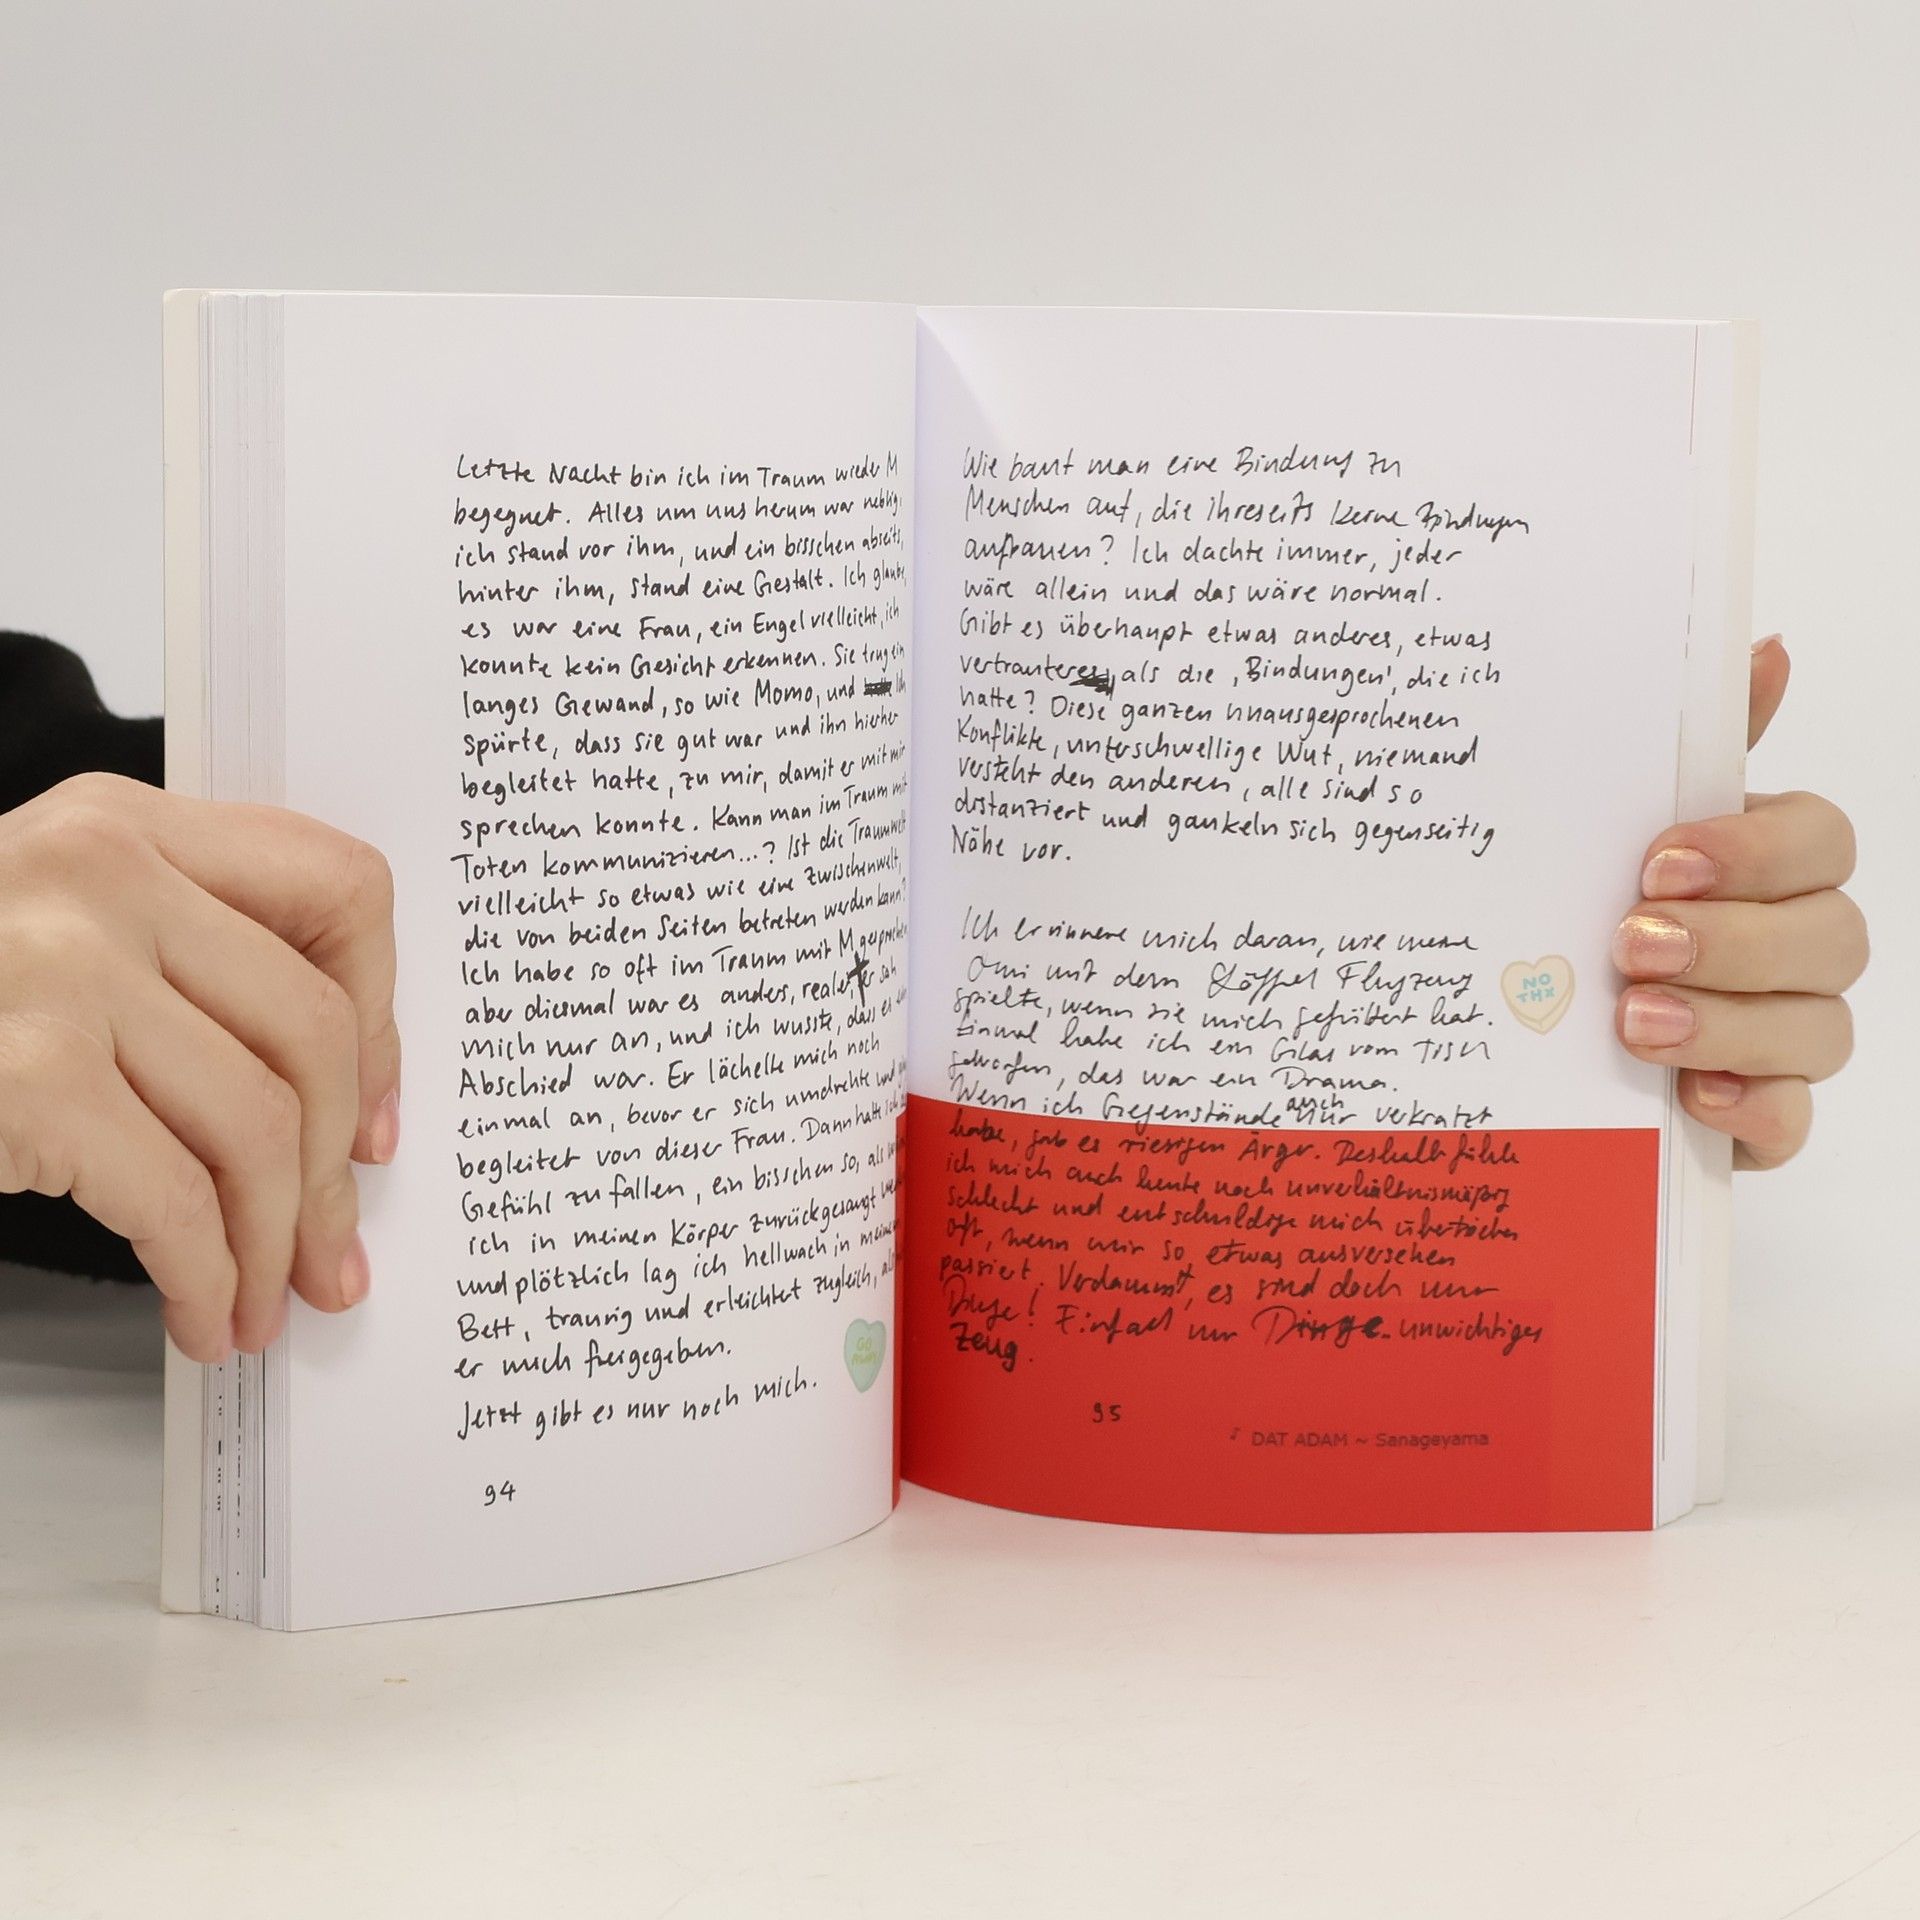 Letzte Nacht bin ich im Traum wieder M
begegnet. Alles um uns herum war neblig,
ich stand vor ihm, und ein bisschen abseits,
hinter ihm, stand eine Gestalt. Ich glaube,
es war eine Frau, ein Engel vielleicht, ich
konnte kein Gesicht erkennen. Sie trug ein
langes Gewand, so wie Momo, und Ich
spürte, dass sie gut war und ihn hierher
begleitet hatte, zu mir, damit er mit mir
sprechen konnte. Kann man im Traum mit
Toten kommunizieren...? Ist die Traumwelt
vielleicht so etwas wie eine Zwischenwelt,
die von beiden Seiten betreten werden kann?
Ich habe so oft im Traum mit M gesprochen
aber diesmal war es anders, realer, er sah
mich nur an, und ich wusste, dass es ein
Abschied war. Er lächelte mich noch
einmal an, bevor er sich umdrehte und
begleitet von dieser Frau. Dann hatte ich
Gefühl zu fallen, ein bisschen so, als
ich in meinen Körper zurückgesaugt
und plötzlich lag ich hellwach in meinem
Bett, traurig und erleichtert zugleich, als
er mich freigegeben.
Jetzt gibt es nur noch mich.
GO
AWAY
94
Wie baut man eine Bindung zu
Menschen auf, die ihreseits keine Bindungen
aufbauen? Ich dachte immer, jeder
wäre allein und das wäre normal.
Gibt es überhaupt etwas anderes, etwas
vertrauteres, als die ‚Bindungen', die ich
hatte? Diese ganzen unausgesprochenen
Konflikte, unterschwellige Wut, niemand
versteht den anderen, alle sind so
distanziert und gaukeln sich gegenseitig
Nähe vor.
Ich erinnere mich daran, wie meine
Omi mit dem Löffel Flugzeug
spielte, wenn sie mich gefüttert hat.
Einmal habe ich ein Glas vom Tisch
geworfen, das war ein Drama.
Wenn ich Gegenstände auch nur verkratzt
habe, gab es riesigen Ärger. Deshalb fühle
ich mich auch heute noch unverhältnismäßig
schlecht und entschuldige mich übertrieben
oft, wenn mir so etwas ausversehen
passiert. Verdammt, es sind doch nur
Dinge! Einfach nur Dinge. unwichtiges
Zeug.
NO
THX
95
♪ DAT ADAM ~ Sanageyama